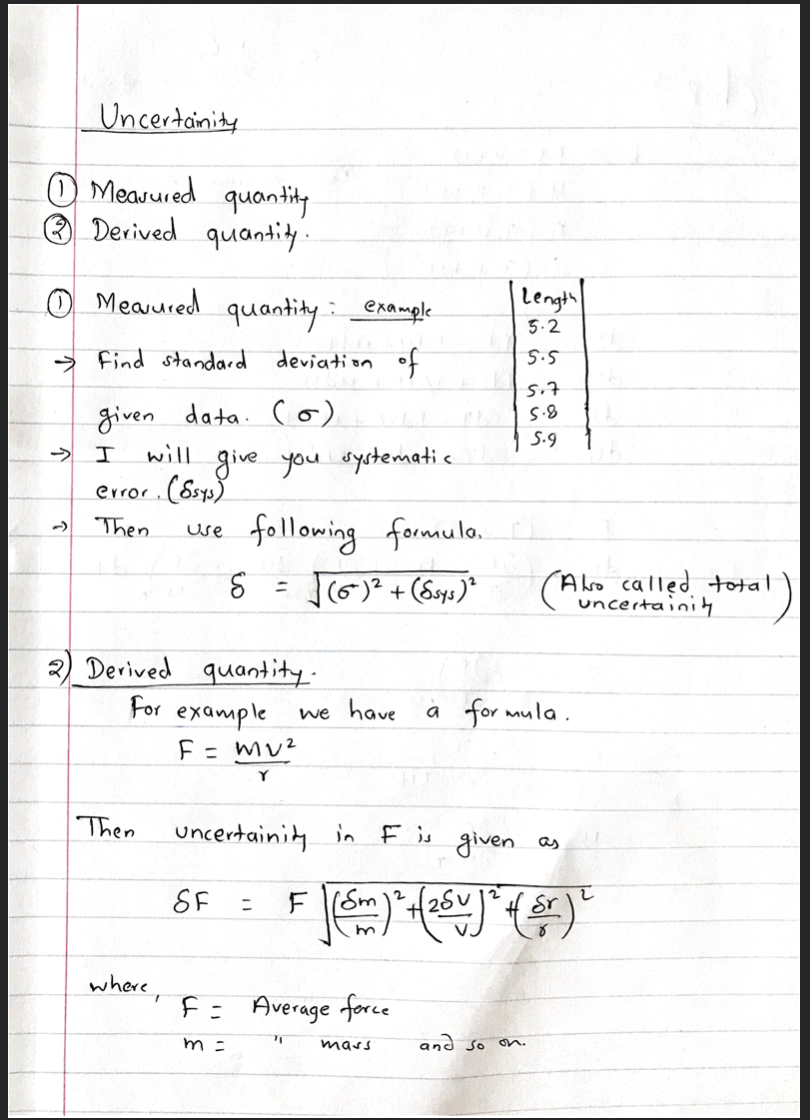 Uncertainity
① Measured quantity
② Derived quantity.
① Measured quantity : example
Length
5.2
5.5
5.7
5.8
5.9
→ Find standard deviation of
given data. (σ)
→ I will give you systematic
error. (δsys)
→ Then use following formula.
δ = √(σ)² + (δsys)² (Also called total
uncertainity)
2) Derived quantity.
For example we have a formula.
F = mv²
r
Then uncertainity in F is given as
δF = F √(δm/m)² + (2δv/v)² + (δr/r)²
where,
F = Average force
m = " mass and so on.